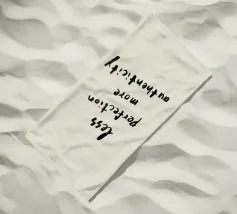 less
perfection
more
authenticity